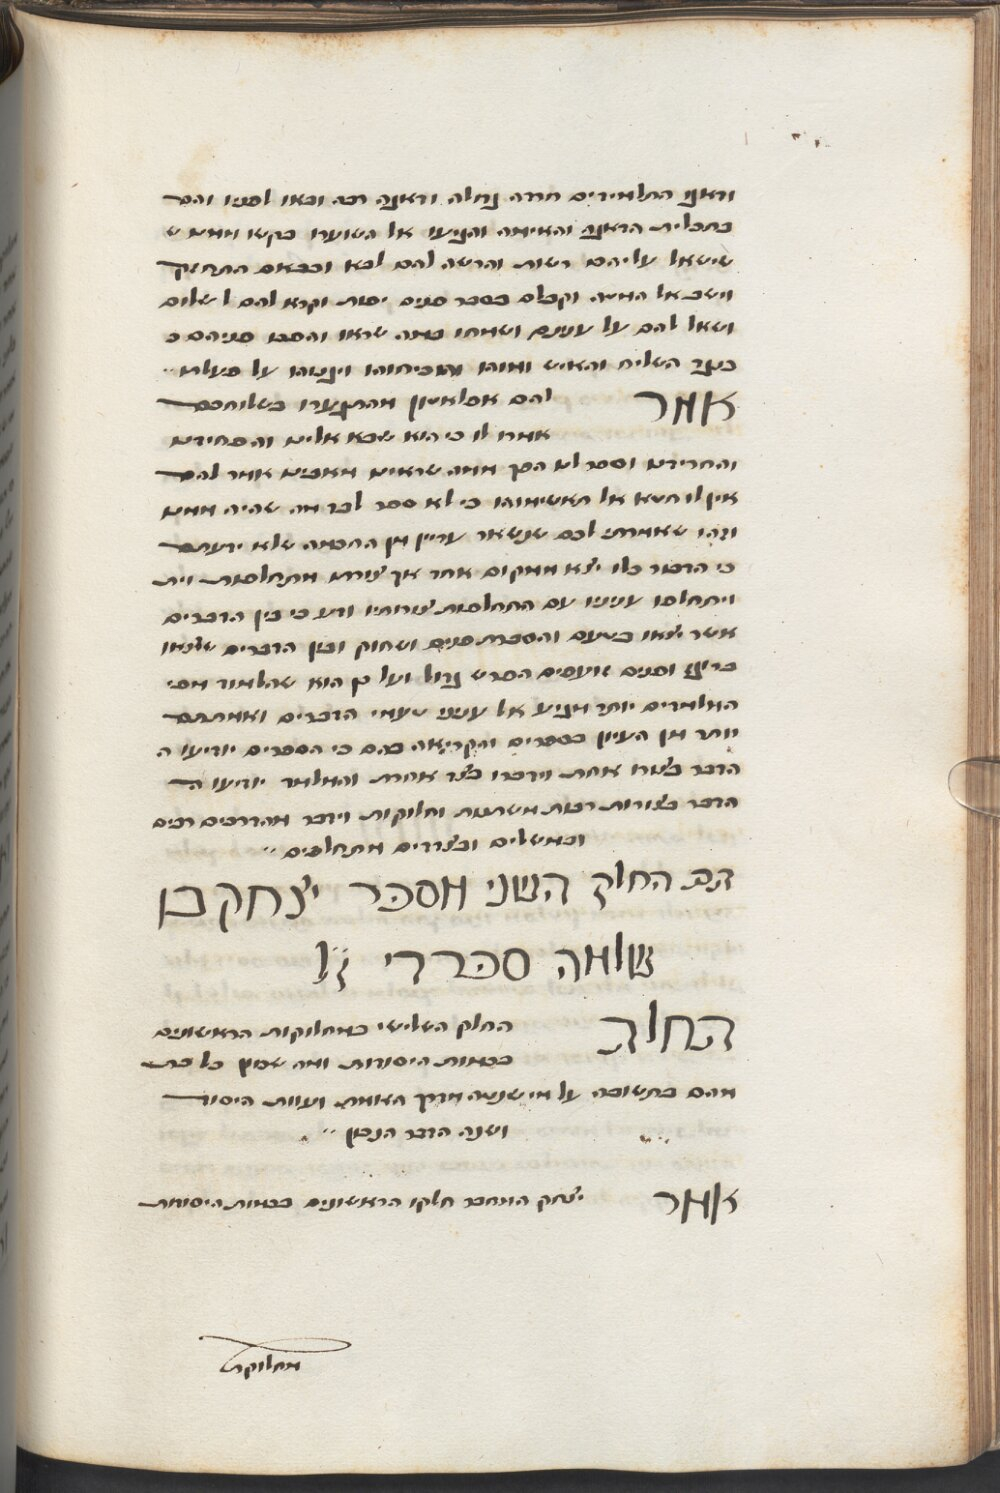 וראו התלמידים חרדה גדולה ודאגה רבה ובאו לפניו והם
בתכלית הדאגה והאימה והגיעו אל השוער בקשו ממנו ש
שישאל עליהם רשות והרשה להם לבא ובבואם התחזק
וישב אל המטה וקבלם בסבר פנים יפות וקרא להם לשלום
ושאל להם על ענינם ושמחו במה שראו והפכו פניהם כ
כנגד השליח והאיש ההוא והוכיחוהו ויגנוהו על פעלתו
אמר להם אפלאטון מה התנערו בשלוחכם
אמרו לו כי הוא שבא אלינו והפחידנו
והחרידנו וספר לנו הפך ממה שראינו מאבינו אמר להם
אין לו חטא אל תאשימוהו כי לא ספר לכם מה שהיה ממנו
וזהו שאמרתי לכם שנשאר עדיין מן החכמה שלא ידעתם
כי הדבור כלו יצא ממקום אחד אך צורתו מתחלפות וית
ויתחלפו עניניו עם התחלפות צורותיו ודע כי בין הדברים
אשר יצאו בטעם והסברת פנים ושחוק ובין הדברים שיצאו
ברוגז ופנים זועפים הפרש גדול ועל כן הוא שהלמוד מפי
המלמדים יותר מגיע אל עניני טעמי הדברים ואמתתם
יותר מן העיון בספרים והקריאה בהם כי הספרים יודיעו ה
הדבר בצורה אחת וידברו בצד אחת והמלמד יודיעו ה
הדבר בצורות רבות משתנות וחלוקות וידבר מהדרכים רבים
ובמשלים ובצדדים מתחלפים
תם החלק השני מספר יצחק בן
שלמה ספרדי ז״ל
החלק החלק השלישי במחלוקות הראשונים
בכמות היסודות ומה שטען כל כת
מהם בתשובה על מי שנטה מדרך האמת ועוות היסוד
ושנה הדבר הנכון
אמר יצחק המחבר חלקו הראשונים בכמות היסודות
מחלוקת